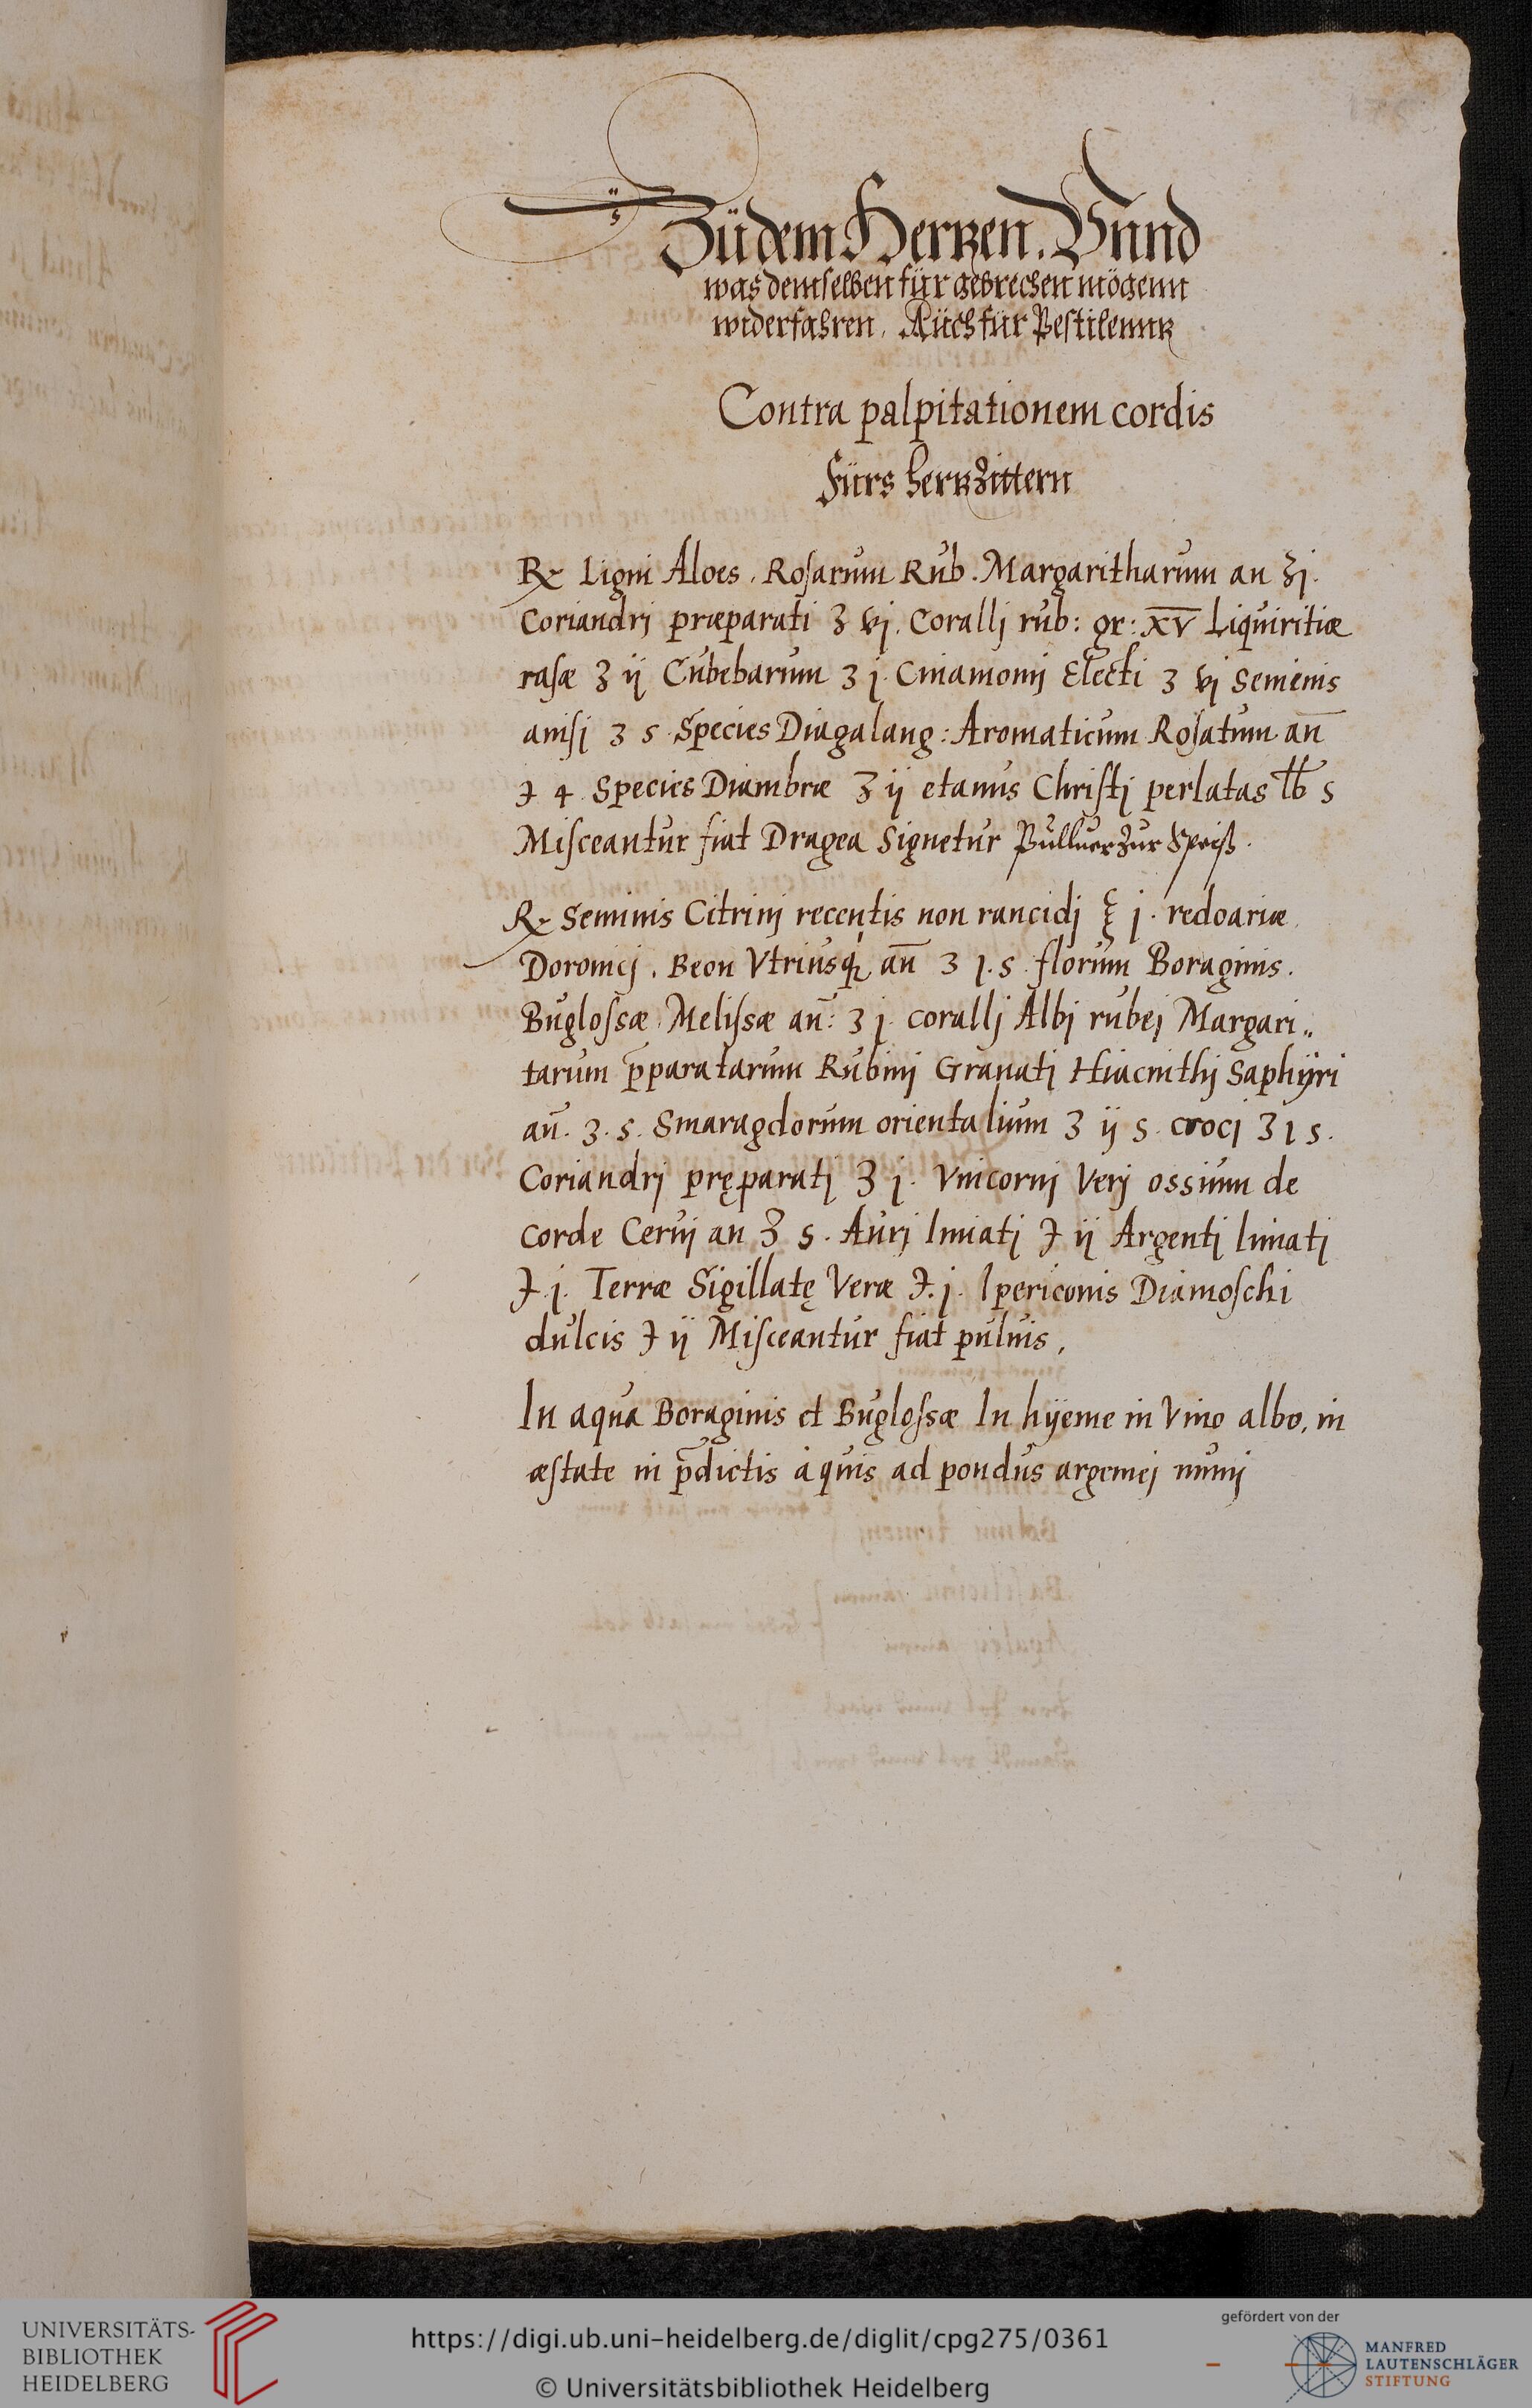 Zü dem Hertzen. Vnnd
was demselben für gebrechen mögenn
widerfahren. Aüch für Pestilenntz
Contra palpitationem cordis
fürs hertzzittern
℞ Ligni Aloes. Rosarum Rub. Margaritharum an ʒ j.
Coriandrj præparati ʒ vj. Corallj rub: gr: XV Liquiritiæ
rasæ ʒ ij Cubebarum ʒ j. Cinamomj Electi ʒ vj Seminis
anisj ʒ s. Species Diagalang: Aromaticum Rosatum an̄
℈ 4. Species Diambræ ʒ ij etanus Christj perlatas lb s
Misceantur fiat Dragea Signetur Pulluer zur Speiß.
℞ Seminis Citrinj recentis non rancidj ℥ j. redoariæ
Doronicj. Beon Vtriusq; an̄ ʒ j. s. florum Boraginis.
Buglossæ Melissæ an̄: ʒ j. corallj Albj rubej Margari„
tarum p̄paratarum Rubinj Granatj Hiacinthj Saphÿri
an̄. ʒ. s. Smaragdorum orientalium ʒ ij s. crocj ʒ 1 s.
Coriandrj pręparatj ʒ j. Vnicornj Verj ossium de
corde Ceruj an ʒ s. Aurj limatj ℈ ij Argentj limatj
℈ j. Terræ Sigillatę Veræ ℈. j. Ipericonis Diamoschi
dulcis ℈ ij Misceantur fiat puluis,
In aqua Boraginis et Buglossæ In hÿeme in Vino albo, in
æstate in p̄dictis aquis ad pondus argemej numj
UNIVERSITÄTS-
BIBLIOTHEK
HEIDELBERG
https://digi.ub.uni-heidelberg.de/diglit/cpg275/0361
© Universitätsbibliothek Heidelberg
gefördert von der
MANFRED
LAUTENSCHLÄGER
STIFTUNG